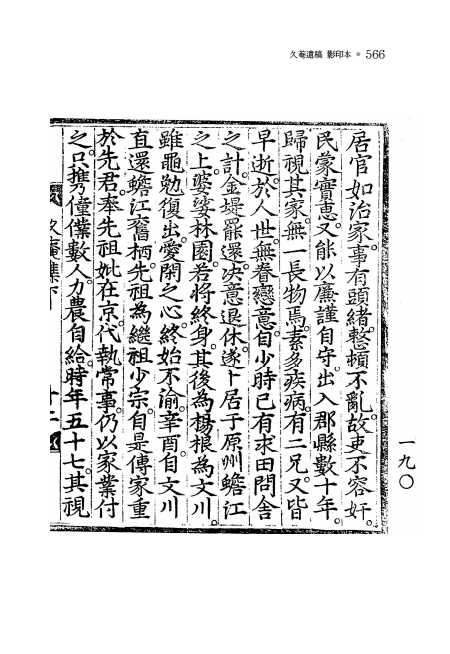 久菴遺稿 影印本 • 566
居官如治家。事有頭緖。整頓不亂。故吏不容奸。
民蒙實惠。又能以廉謹自守。出入郡縣數十年。
歸視其家。無一長物焉。素多疾病。有二兄。又皆
早逝。於人世。無眷戀意。自少時已有求田問舍
之計。金堤罷還。決意退休。遂卜居于原州蟾江
之上。婆娑林園。若將終身。其後為楊根為文川。
雖黽勉復出。愛閑之心。終始不渝。辛酉。自文川
直還蟾江舊栖。先祖為繼祖少宗。自是傳家重
於先君。奉先祖妣在京。代執常事。仍以家業付
之。只携僮僕數人。力農自給。時年五十七。其視
久菴集下
十二
一九〇